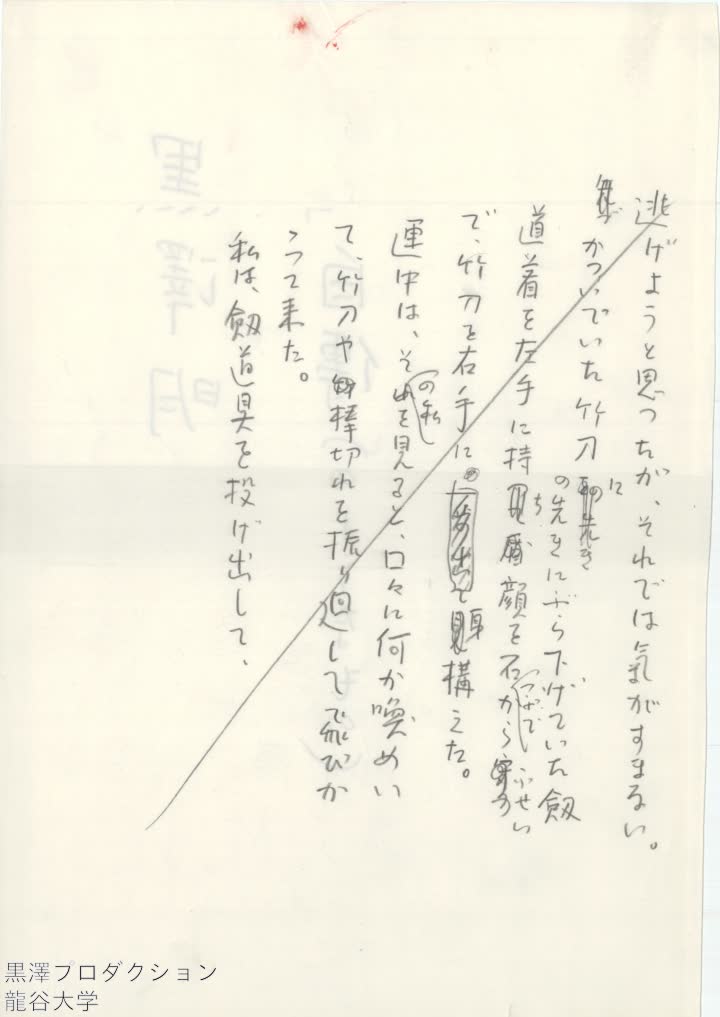 逃げようと思ったが、それでは気がすまない。
かついでいた竹刀に
の先きにぶら下げていた剱
道着を左手に持ち顔を石からふせい
つぶて
で、竹刀を右手に身構えた。
連中は、それを見ると、口々に何か喚めい
の私
て、竹刀や棒切れを振り回して飛びか
ゝって来た。
私は、剱道具を投げ出して、
黒澤明
黒澤プロダクション
龍谷大学